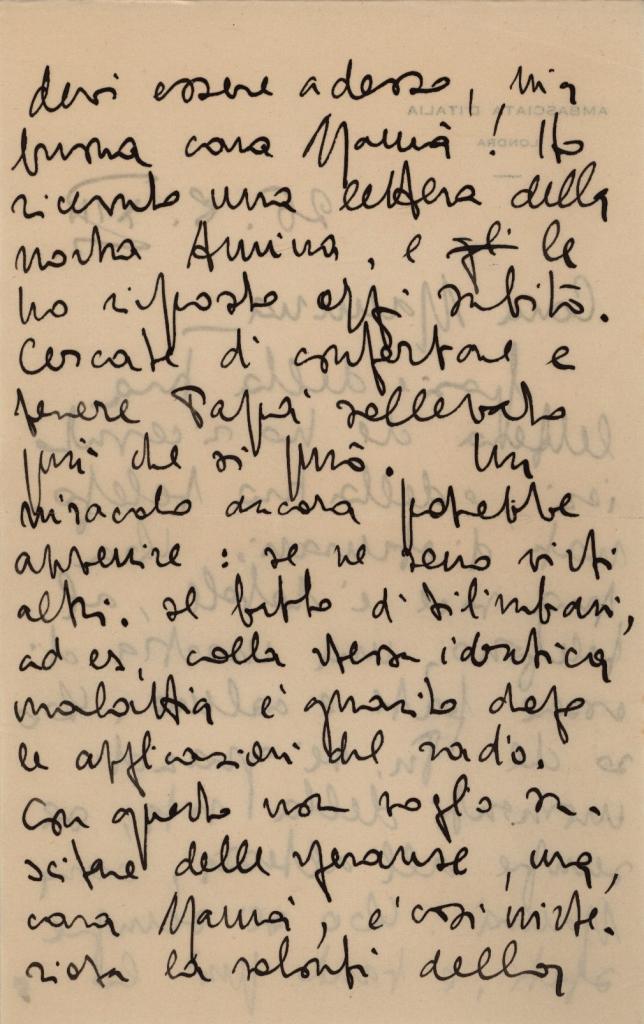 devi essere adesso, mia
buona cara Mamà! Ho
ricevuto una lettera della
nostra Amina, e gli le
ho risposto oggi subito.
Cercate di confortare e
tenere Papà sollevato
più che si può. Un
miracolo ancora potrebbe
avvenire: se ne sono visti
altri. Il di Silimbani,
ad es, colla stessa identica
malattia è guarito dopo
le applicazioni del radio.
Con questo non voglio su-
scitare delle speranze, ma,
cara Mamà, è così miste-
riosa la volontà della
AMBASCIATA D'ITALIA
LONDRA